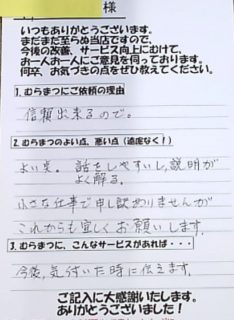 様
いつもありがとうございます。
まだまだ至らぬ当店ですので、
今後の改善、サービス向上にむけて、
お一人お一人にご意見を伺っております。
何卒、お気づきの点をぜひ教えてください。
1.むらまつにご依頼の理由
信頼出来るので。
2.むらまつのよい点、悪い点（遠慮なく！）
よい点。話をしやすいし、説明が
よく解る。
小さな仕事で申し訳ありませんが
これからも宜しくお願いします。
3.むらまつに、こんなサービスがあれば・・・
今後、気付いた時に伝えます。
ご記入に大感謝いたします。
ありがとうございました！